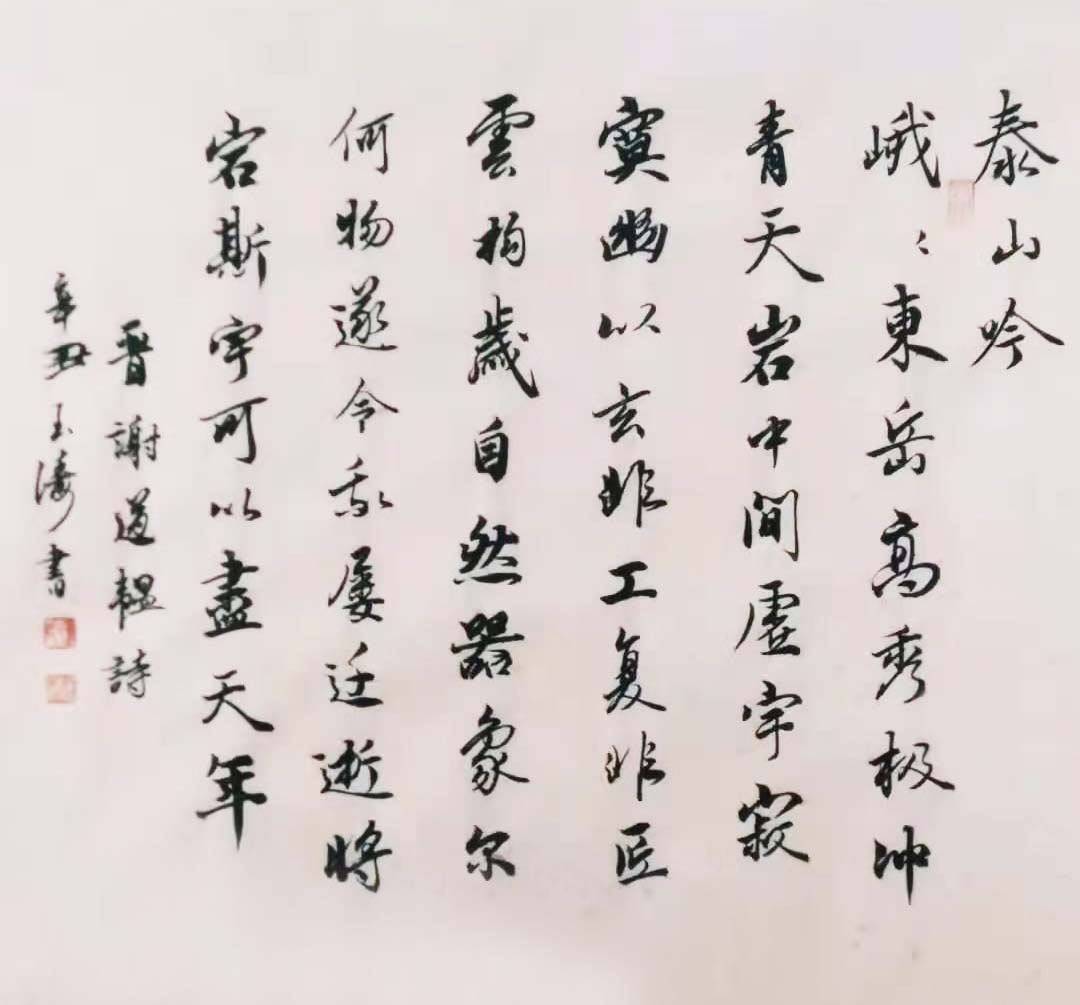 泰山吟
峨〻東岳高秀极冲
青天岩中間虚宇寂
寞幽以玄非工复非匠
雲构歲自然器象尔
何物遂令我屡迁逝將
宕斯宇可以盡天年
晋謝道韞詩
辛丑玉濤書